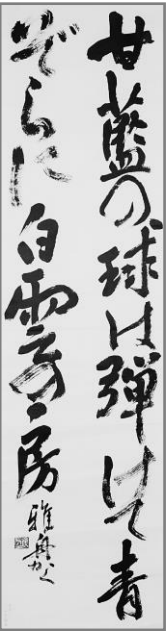 甘藍の球は弾けて青
ぞらに白雲一房
雅舟かく